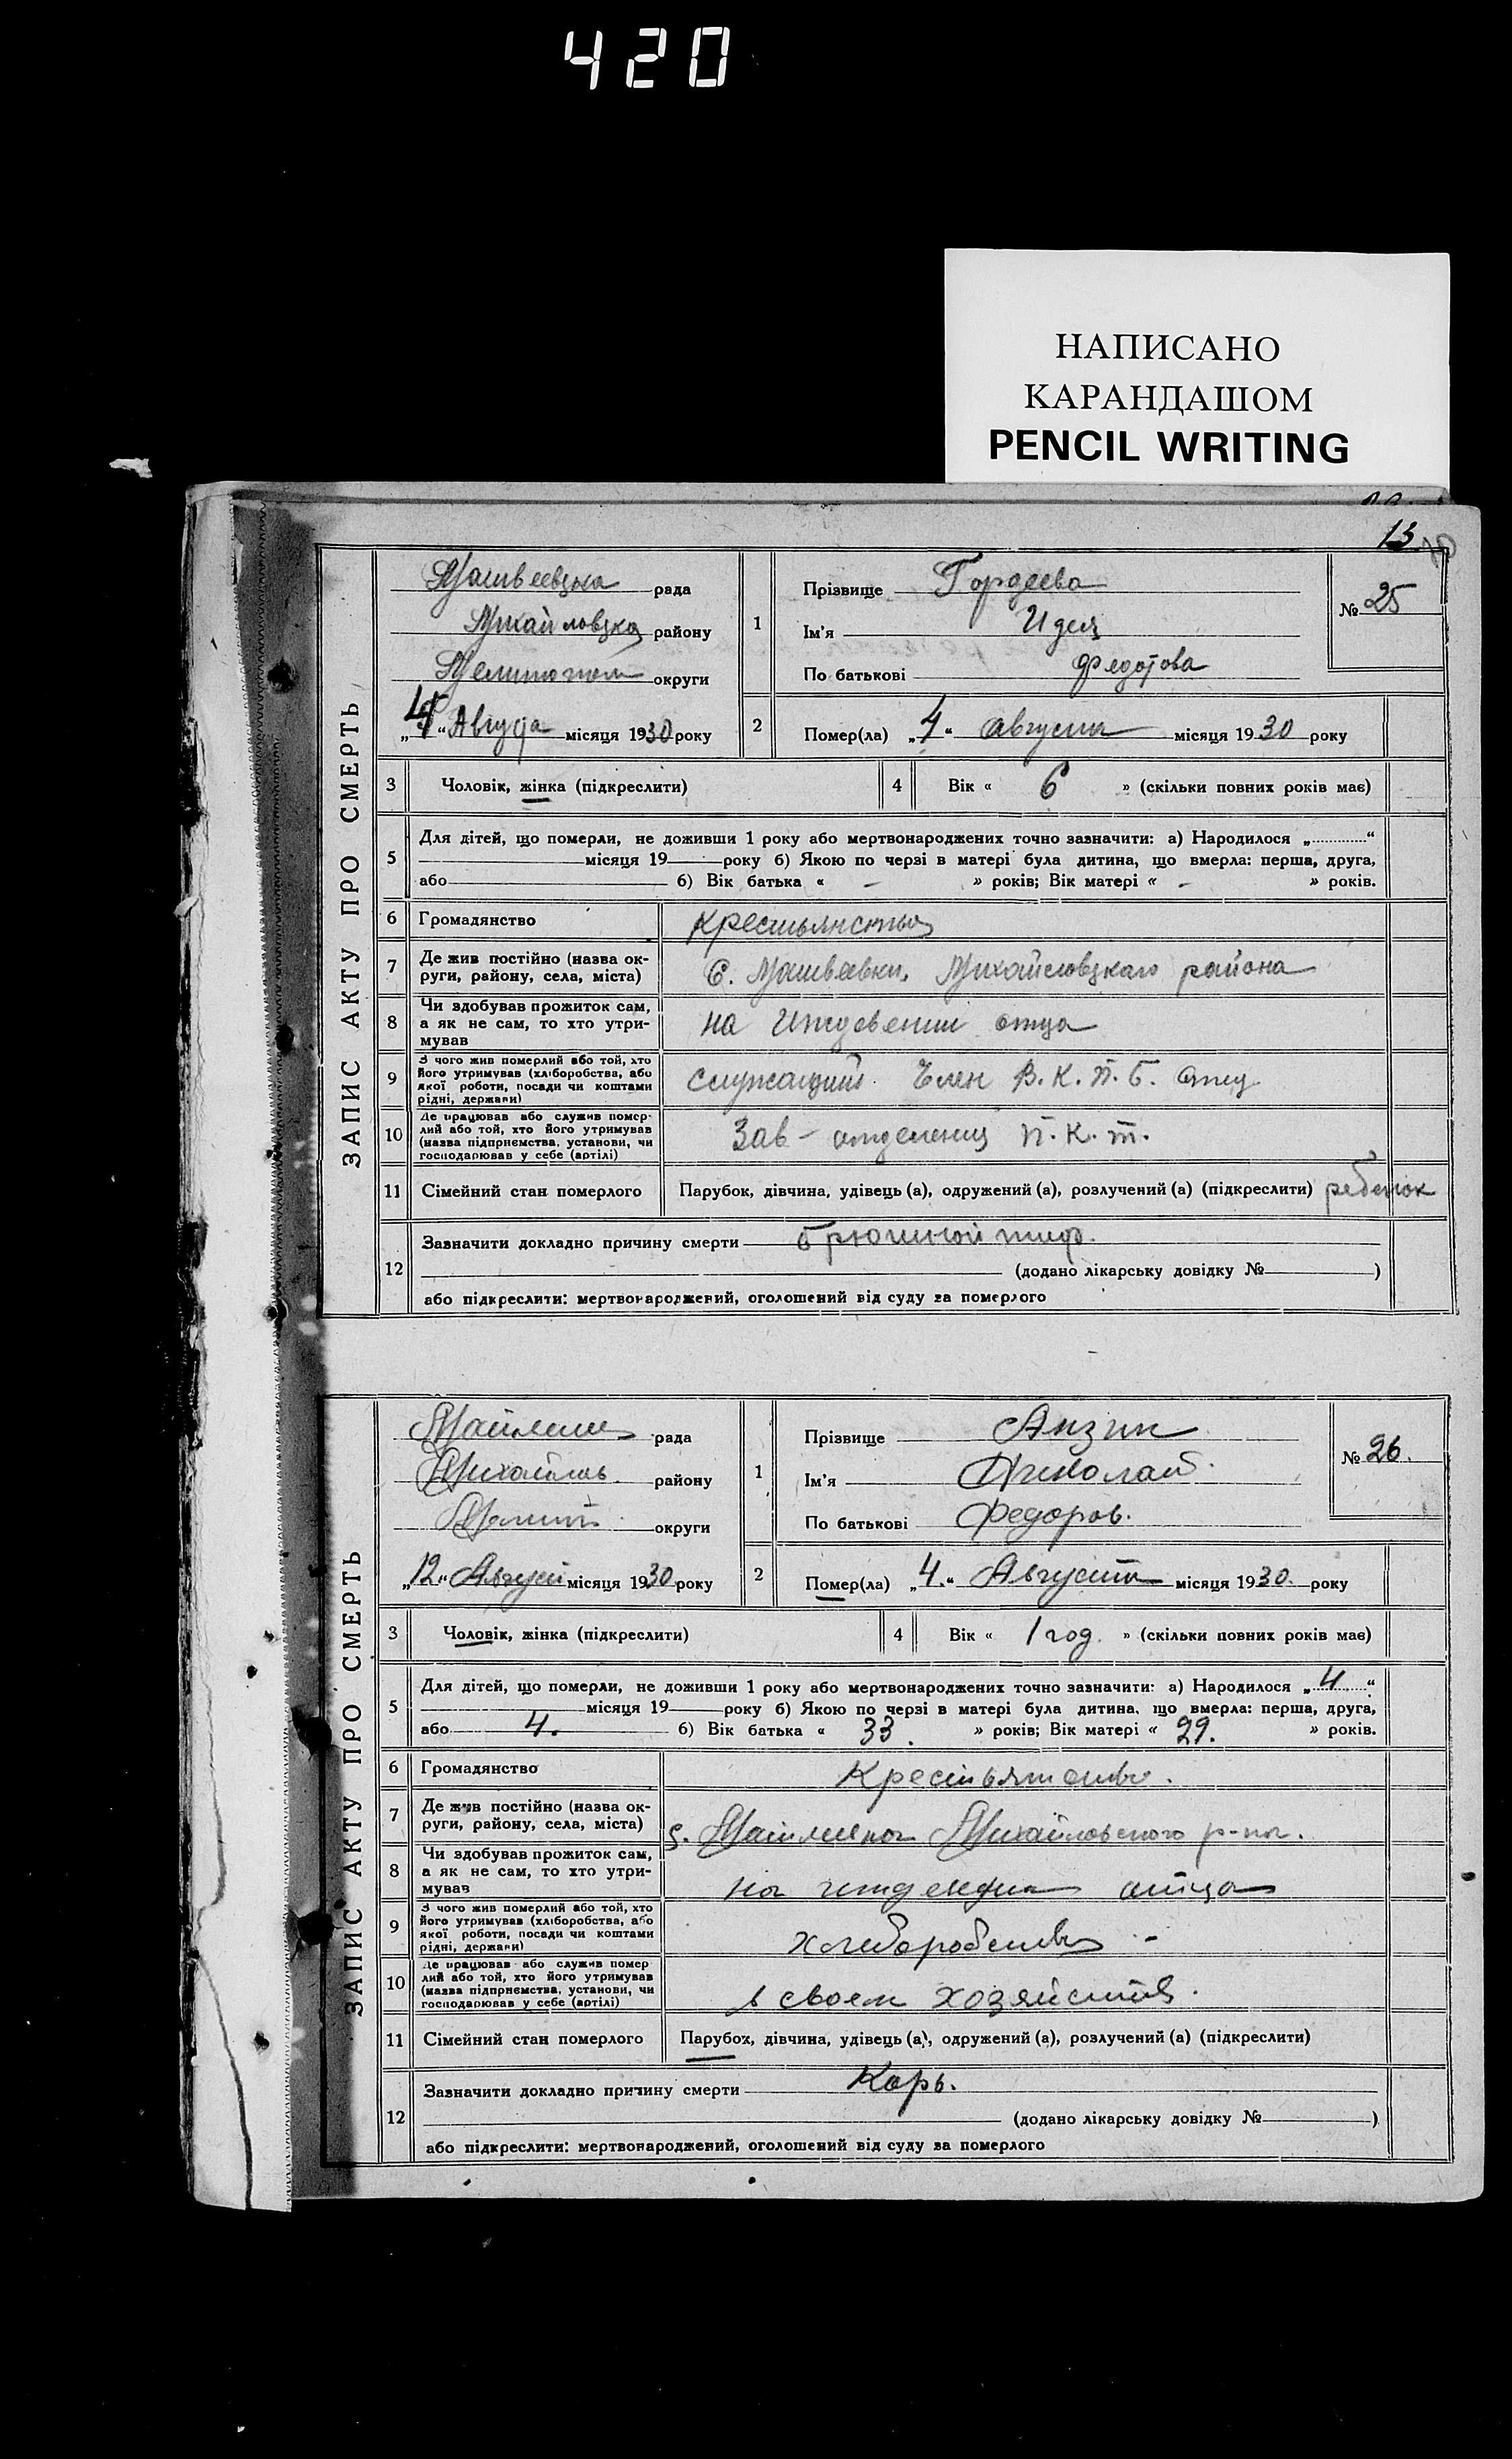 420
НАПИСАНО
КАРАНДАШОМ
PENCIL WRITING
13
ЗАПИС АКТУ ПРО СМЕРТЬ
рада
району
округи
місяця 1930 року
1
Прізвище Гордеева
Ім'я
По батькові Федотова
№ 25
2
Помер(ла) „4“ августа місяця 1930 року
3 Чоловік, жінка (підкреслити)
4 Вік « 6 » (скільки повних років має)
5
Для дітей, що померли, не доживши 1 року або мертвонароджених точно зазначити: а) Народилося „..........“
місяця 19 року б) Якою по черзі в матері була дитина, що вмерла: перша, друга,
або б) Вік батька « - » років; Вік матері « - » років.
6 Громадянство крестьянство
7 Де жив постійно (назва ок-
руги, району, села, міста)
С. Матвеевки, района
8 Чи здобував прожиток сам,
а як не сам, то хто утри-
мував
на отца
9 З чого жив померлий або той, хто
його утримував (хліборобства, або
якої роботи, посади чи коштами
рідні, держави)
служащий. Член В.К.П.Б. отец
10 Де працював або служив помер-
лий або той, хто його утримував
(назва підприємства, установи, чи
господарював у себе (артілі)
Зав - отделения П.К.т.
11 Сімейний стан померлого
Парубок, дівчина, удівець (а), одружений (а), розлучений (а) (підкреслити) ребенок
12
Зазначити докладно причину смерти брюшной тиф.
(додано лікарську довідку № )
або підкреслити: мертвонароджений, оголошений від суду за померлого
ЗАПИС АКТУ ПРО СМЕРТЬ
рада
району
округи
„12“ місяця 1930 року
1
Прізвище
Ім'я Николай
По батькові Федоров.
№ 26.
2
Помер(ла) „4.“ Августа місяця 1930. року
3 Чоловік, жінка (підкреслити)
4 Вік « 1 год. » (скільки повних років має)
5
Для дітей, що померли, не доживши 1 року або мертвонароджених точно зазначити: а) Народилося „4“
місяця 19 року б) Якою по черзі в матері була дитина, що вмерла: перша, друга,
або 4. б) Вік батька « 33. » років; Вік матері « 29. » років.
6 Громадянство
7 Де жив постійно (назва ок-
руги, району, села, міста)
с. Михайловского р-на.
8 Чи здобував прожиток сам,
а як не сам, то хто утри-
мував
на отца
9 З чого жив померлий або той, хто
його утримував (хліборобства, або
якої роботи, посади чи коштами
рідні, держави)
10 Де працював або служив помер
лий або той, хто його утримував
(назва підприємства, установи, чи
господарював у себе (артілі)
в своем
11 Сімейний стан померлого
Парубох, дівчина, удівець (а), одружений (а), розлучений (а) (підкреслити)
12
Зазначити докладно причину смерти Корь.
(додано лікарську довідку № )
або підкреслити: мертвонароджений, оголошений від суду за померлого